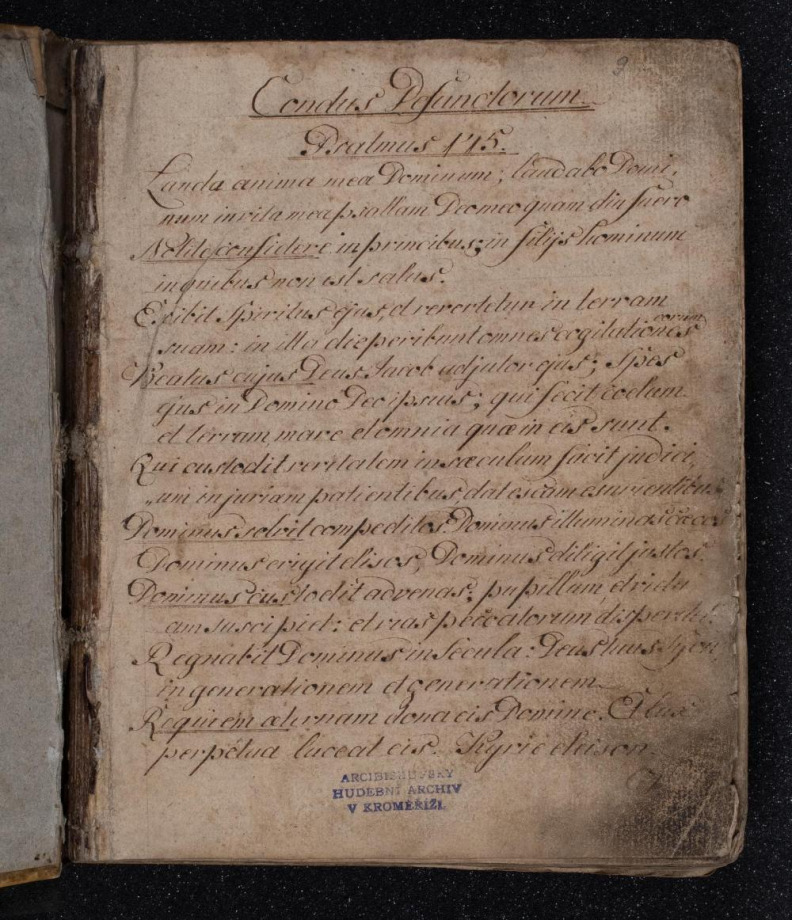 9
Condus Defunctorum
Psalmus 145.
Lauda anima mea Dominum; laudabo Domi,
num in vita mea psallam Deo meo quam diu fuero
Nolite confidere in principibus; in filijs hominum
in quibus non est salus.
Exibit Spiritus ejus, et revertetur in terram
eorum
suam: in illa die peribunt omnes cogitationes
Beatus cujus Deus Jacob adjutor ejus; Spes
ejus in Domino Deo ipsius; qui fecit coelum
et terram mare et omnia quæ in eis sunt.
Qui custodit veritatem in sæculum facit judici,
um injuriam patientibus, dat escam esurientibus
Dominus solvit compeditos Dominus illuminat cæcos
Dominus erigit elisos, Dominus diligit justos.
Dominus custodit advenas; pupillum et vidu
am suscipiet: et vias peccatorum disperdet.
Regnabit Dominus in Secula: Deus tuus Syon
in generationem et generationem
Requiem æternam dona eis Domine. Et lux
perpetua luceat eis. Kyrie eleison.
ARCIBISKUPSKÝ
HUDEBNÍ ARCHIV
V KROMĚŘÍŽI.